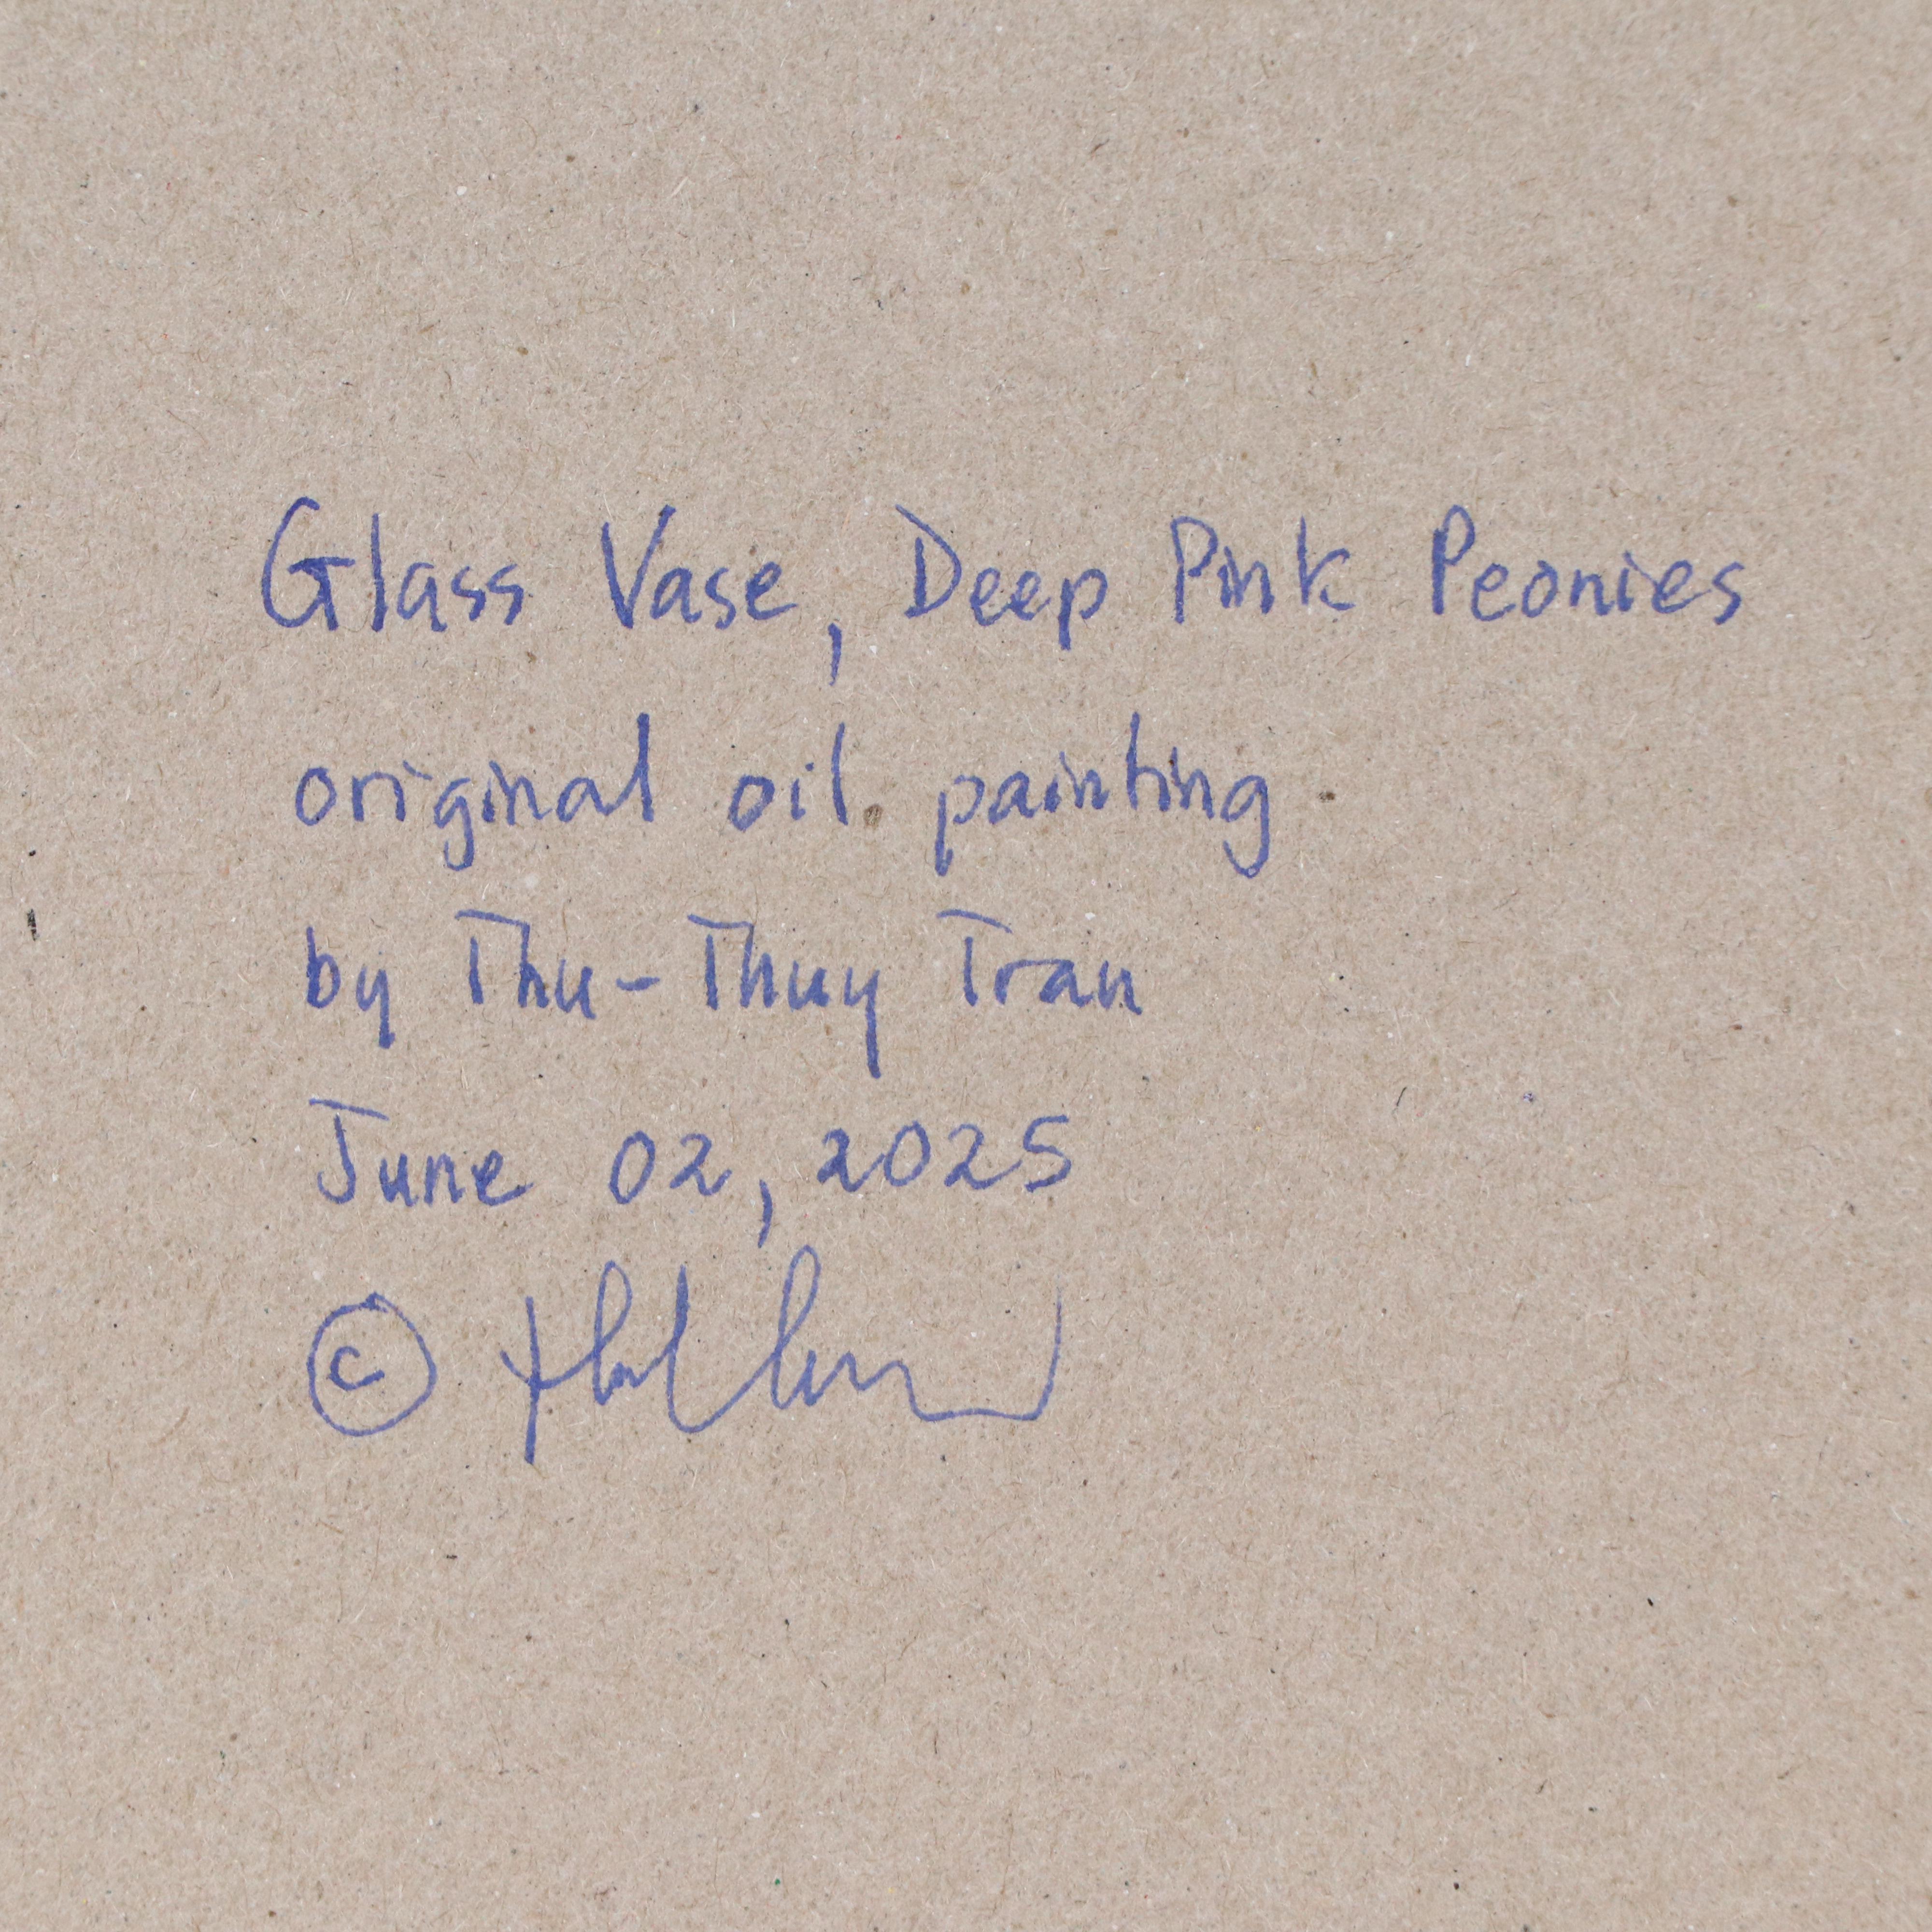 Glass Vase, Deep Pink Peonies
original oil painting
by Thu-Thuy Tran
June 02, 2025
©